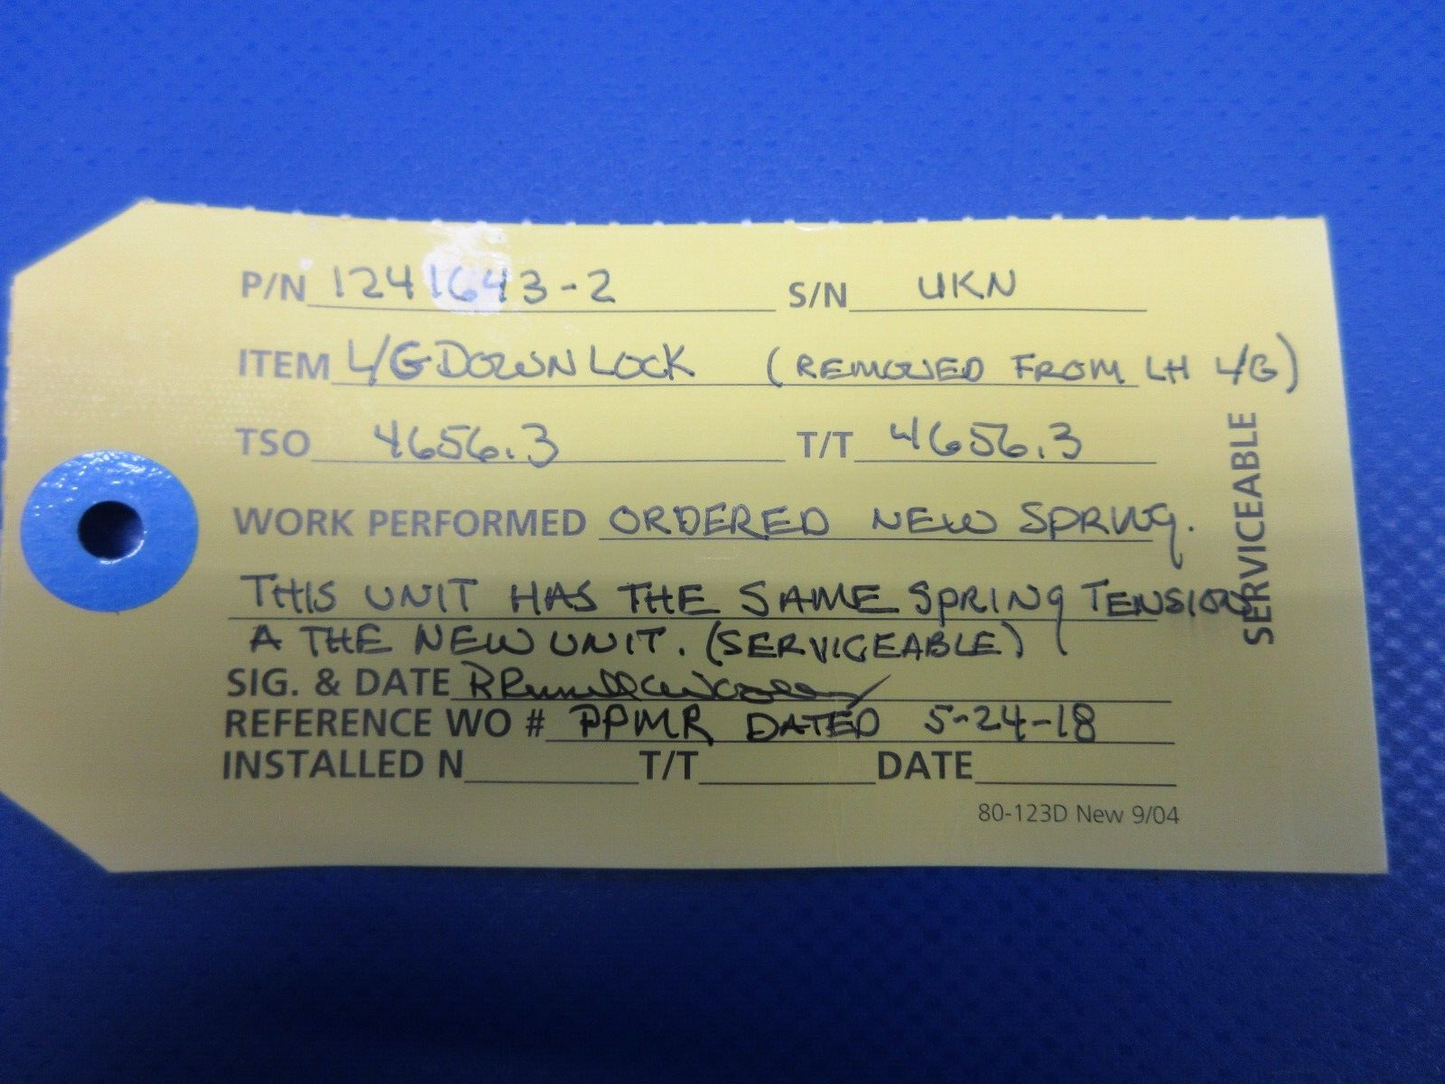 P/N 1241643-2 S/N UKN
ITEM L/G DOWN LOCK (REMOVED FROM LH L/G)
TSO 4656.3 T/T 4656.3
WORK PERFORMED ORDERED NEW SPRING.
THIS UNIT HAS THE SAME SPRING TENSION
A THE NEW UNIT. (SERVICEABLE)
SIG. & DATE
REFERENCE WO # PPMR DATED 5-24-18
INSTALLED N T/T DATE
80-123D New 9/04
SERVICEABLE